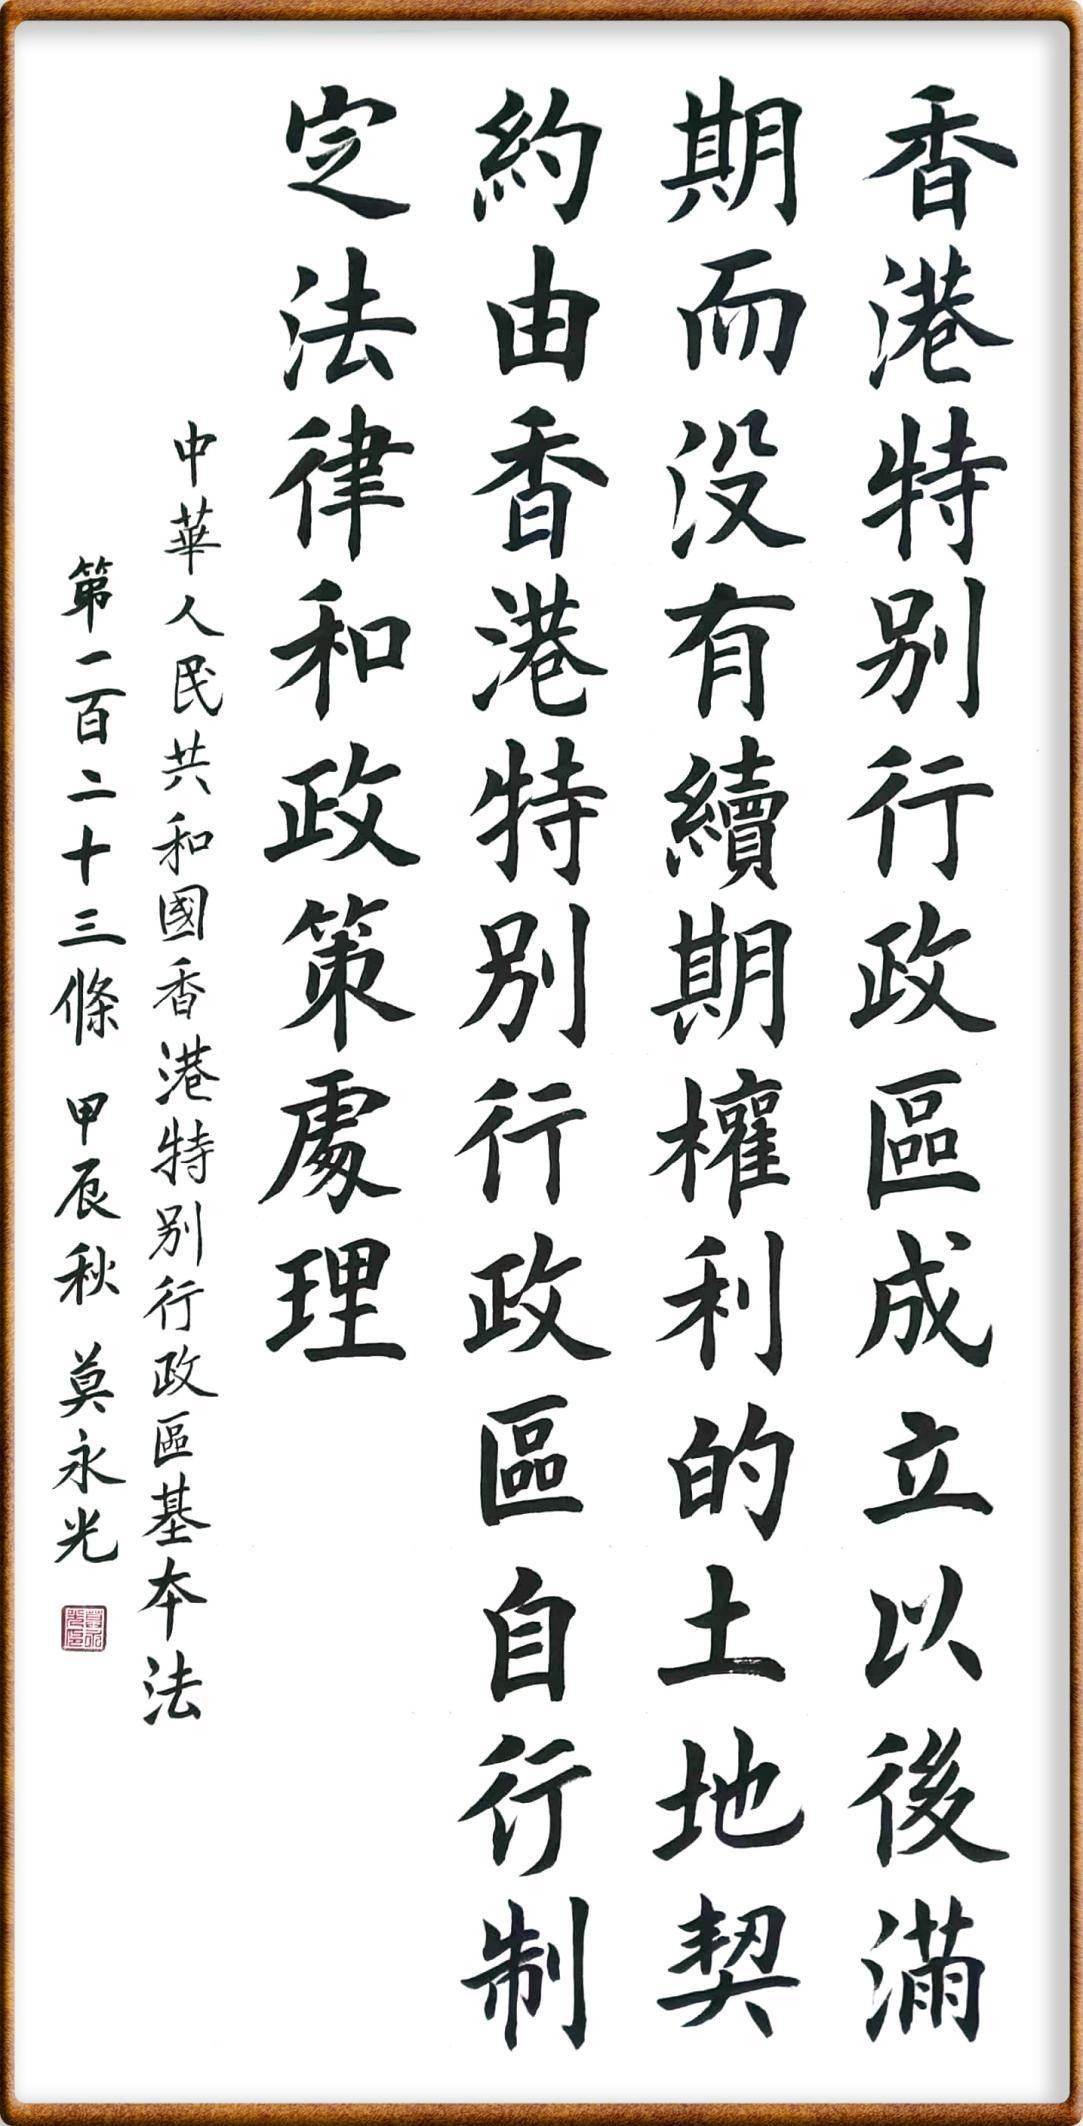 香港特別行政區成立以後滿
期而没有續期權利的土地契
約由香港特別行政區自行制
定法律和政策處理
中華人民共和國香港特別行政區基本法
第一百二十三條 甲辰秋 莫永光